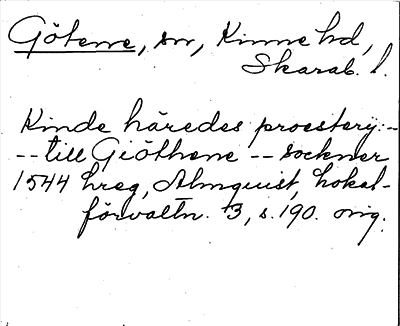 Götene, sn, Kinne hd,
Skarab. l.
Kinde häredes proestery:-
-- till Giöthene -- sockner
1544 hreg, Almquist, Lokal-
förvaltn. 3, s. 190. orig.